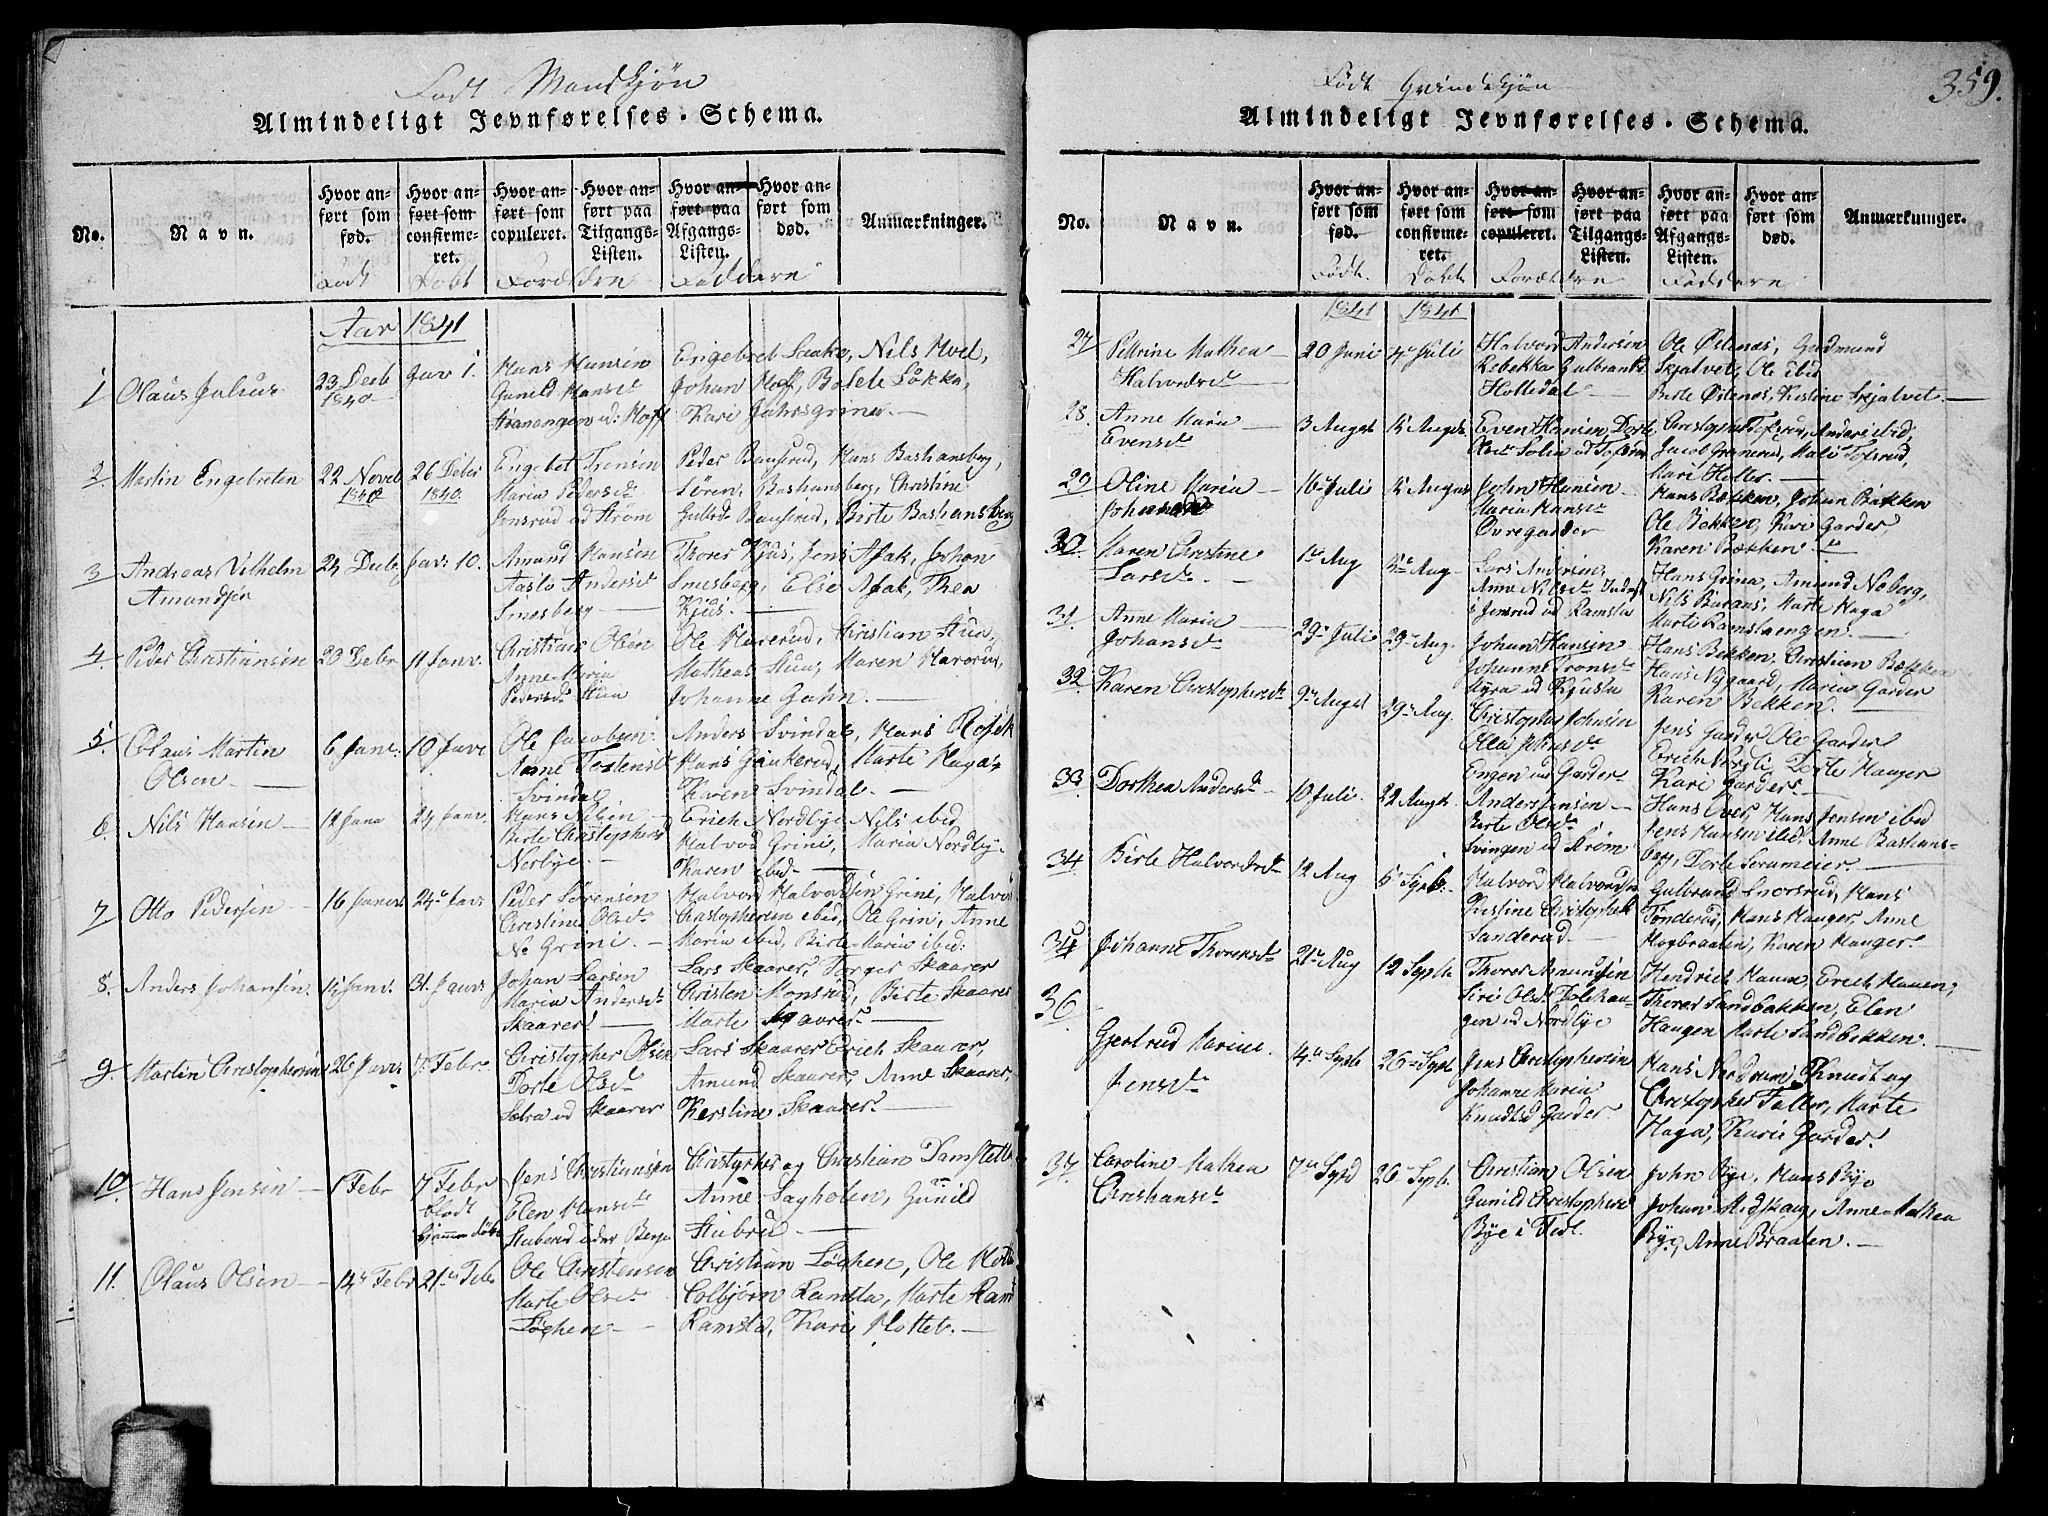 Født Mandkjøn
Almindeligt Jevnførelses-Schema.
No.
Navn.
Hvor anført som fød.
Hvor anført som confirmeret.
Hvor anført som copuleret.
Hvor anført paa Tilgangs-Listen.
Hvor anført paa Afgangs-Listen.
Hvor anført som død.
Anmærkninger.
Født Døbt Forældre Faddere
Aar 1841
1 Olaus Julius 23 Decb 1840 Jav 1.
Hans Hansen
Gunild Hansd
Engebret Nils
Johan Hoff, Bolete Løkka,
Kari
2. Martin Engebretsen 22 Noveb 1840 26 Debr 1840.
Engebet Tronsen
Maria Pedersd
Jensrud ad Strøm
Peder Hans Bashansberg,
Sören, Bashansberg, Christine
Birte Bashansberg
3 Andreas Vilhelm Amundsen 24 Decb Jav: 10.
Amund Hansen
Aaste Andersd
Smesberg
Thorer Kjus, Jens Johan
Smesberg, Else Thea
Kjus.
4. Peder Christiansen 20 Debr 11 Janv.
Christian Olsen
Anne Maria
Pedersd Stua
Ole Harerud, Christian Stua,
Mathias Stua, Maren
Johanne Gahn.
5. Olaus Martin Olsen. 6 Jane. 10 Jave
Ole Jacobsen
Anne Tostensd
Svindal
Anders Svindal, Hans
Hans Marte Haga
Karen Svindal.
6. Nils Hansen 12 Jana 24 Janv.
Hans Nilsen
Birte Christophersd
Norbye.
Erich Nordbye Nils ibid,
Halvod Grini, Maria Nordby
Karen ibid
7 Otto Pedersen 16 Janv 24 Jav:
Peder Sörensen
Christine Olsd
N. Grini.
Halvord Halvordsen Grini, Halvor
Christophersen ibid, Ole Grini, Anne
Maria ibid, Birte Maria ibid:
8. Anders Johansen 14 Janv. 31 Janvr
Johan Larsen
Maria Andersd
Skaarer
Lars Skaarer, Torger Skaarer
Christen Monsrud, Birte Skaarer
Marte Skaarer
9. Martin Christophersen 26 Janv 7 Febr.
Christopher Olsen
Dorte Olsd
Sætra ad Skaarer
Lars Skaarer Erich Skaarer,
Amund Skaarer, Anne Skaarer,
Kerstine Skaarer.
10 Hans Jensen 1 Febr 7 Febr
blodt
hjemmedøbt
Jens Christiansen
Elen Hansd
Stuberud under Berga
og Christian Damstette
Anne Sagholen, Gunild
Stubru
11. Olaus Olsen 14 Febr 21 Febr
Ole Christensen
Marte Olsd
Löchen
Christian Löchen, Ole
Colbjörn Ramsta, Marte Ramst
Ramsta, Kari Hottet.
359.
Født Qvindekjøn
Almindeligt Jevnførelses-Schema.
No.
Navn.
Hvor anført som fød.
Hvor anført som confirmeret.
Hvor anført som copuleret.
Hvor anført paa Tilgangs-Listen.
Hvor anført paa Afgangs-Listen.
Hvor anført som død.
Anmærkninger.
Født. Døbt Forældre Faddere
1841 1841
27 Pettrine Mathea Halvordsd 20 Juni 4 Juli
Halvord Andersen
Rebekka Gulbrandsd
Holledal
Ole Østenes, Gudmund
Skjalvet, Ole ibid
Birte Østenes, Kirstine Skjalvet.
28. Anne Maria Evensd 3 Augst 15 Augst
Even Hansen, Dorte
Christopher Tofsrud, Anders ibid,
Jacob Granerud, Mali Tofsrud,
Mari Holter.
29 Oline Maria 16 Juli 15 Augst
John Hansen
Maria Hansd
Øvregarder
Hans Bækken, Johan Bækken
Ole Bekken, Kari Garder,
Karen Bækken.
30. Karen Christine Larsd. 1 Aug 15 Aug.
Lars Andersen,
Anne Nilsd
Jensrud ad Ramsta
Hans Grina, Amund Noberg,
Nils Burans, Marte Haga
Marte Ramstaengen.
31. Anne Maria Johansd 29 Juli 29 Aug.
Johan Hansen
Johanne Tronsd
ad Kjusta
Hans Bekken, Christian Bækken
Hans Nygaard, Maria Garder
Karen Bekken.
32 Karen Christophersd 9 Augst 29 Aug.
Christopher Johnsen
Engen ad Garder
Jens Garder Ole Garder
Erich Dorte Hauger
Kari Garder
33 Dorthea Andersd 10 Juli. 22 Augt
Anders Jensen
Birte Olsd
Svingen ad Strøm
Hans Over, Hans Jensen ibid
Jens Hansen ibid, Anne Bashansberg, Dorte
34 Birte Halvordsd 12 Aug 5 Sepb.
Halvord Halvordsen
Kirstine Christophersd
Sanderud
Gulbrand Snorsrud, Hans
Tönderud, Hans Hauger, Anne
Hogbraaten, Karen Hauger.
35 Johanne Thorersd 21 Aug 12 Septb
Thorer Amundsen
Siri Olsd
ad Nordbye
Hendrich Hauen, Erich Hauen,
Thorer Sandbakken, Elen
Haugen Marte Sandbekken.
36 Gjertrud Karine Jensd 4 Septb 26 Septb
Jens Christophersen
Johanne Maria
Knudsd Garder
Hans Nordrum, Knudt og
Christopher Faller, Marte
Haga, Kari Garder.
37. Caroline Mathea Christiansd 7 Septb 26 Septb.
Christian Olsen
Gunild Christophersd
Bye i Fedt.
John Bye, Hans Bye
Johan Midskaug, Anne Mathea
Bye, Anne Braaten.